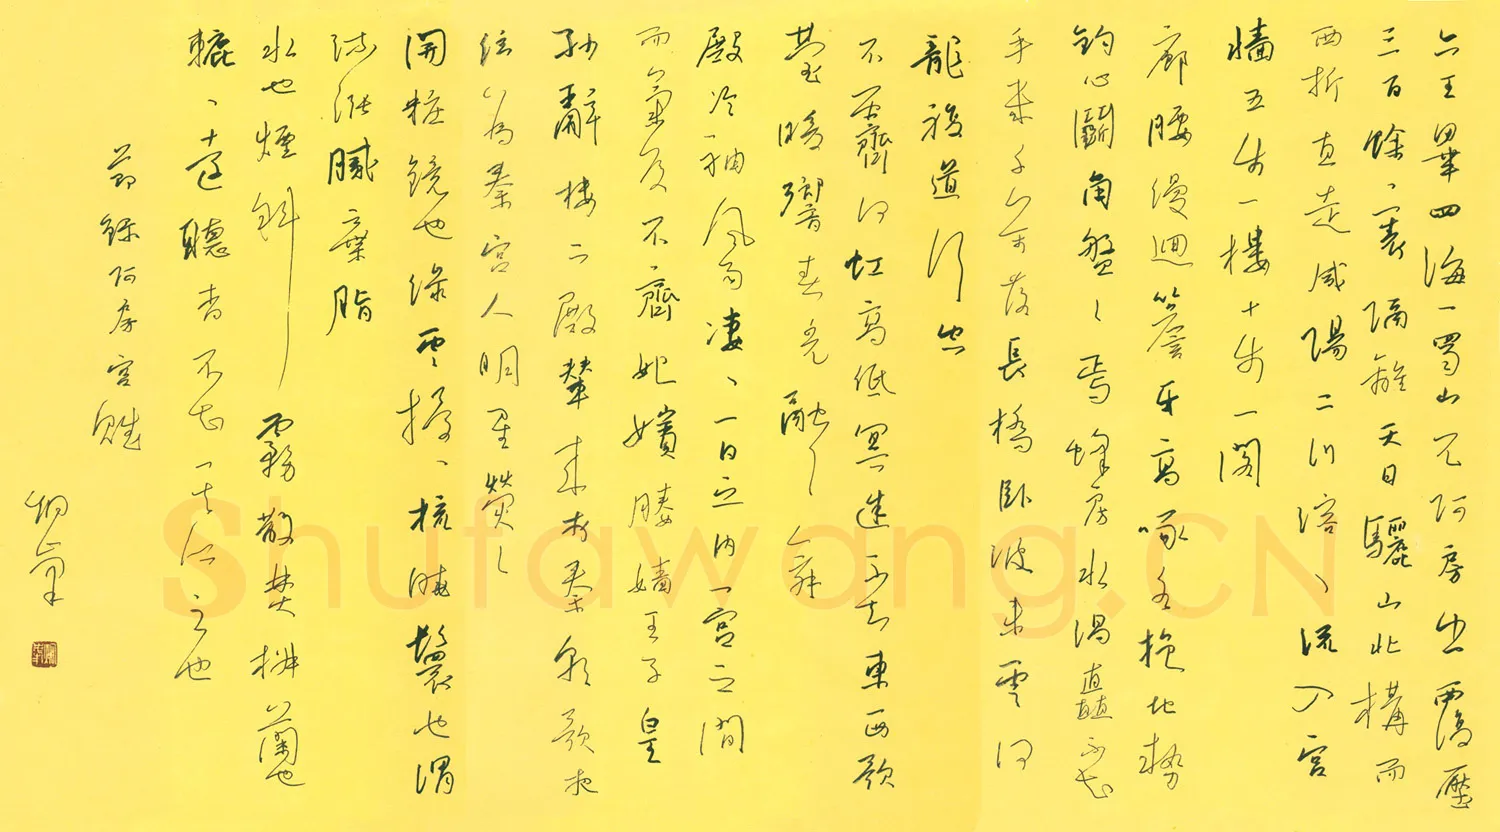 六王畢四海一蜀山兀阿房出覆壓
三百餘里隔離天日驪山北構而
西折直走咸陽二川溶〻流入宮
牆五步一樓十步一閣
廊腰縵迴簷牙高啄各抱地勢
鈎心鬪角盤〻焉蜂房水渦矗不知
乎幾千萬落長橋臥波未雲何
龍複道行空
不霽何虹高低冥迷不知東西歌
臺暖響春光融〻舞
殿冷袖風雨淒〻一日之內一宮之間
而氣候不齊妃嬪媵嬙王子皇
孫辭樓下殿輦來於秦朝歌夜
絃為秦宮人明星熒〻
開粧鏡也綠雲擾〻梳曉鬟也渭
流漲膩棄脂
水也煙斜霧散焚椒蘭也
轆〻遠聽杳不知其所之也
節錄阿房宮賦
Shufawang.CN